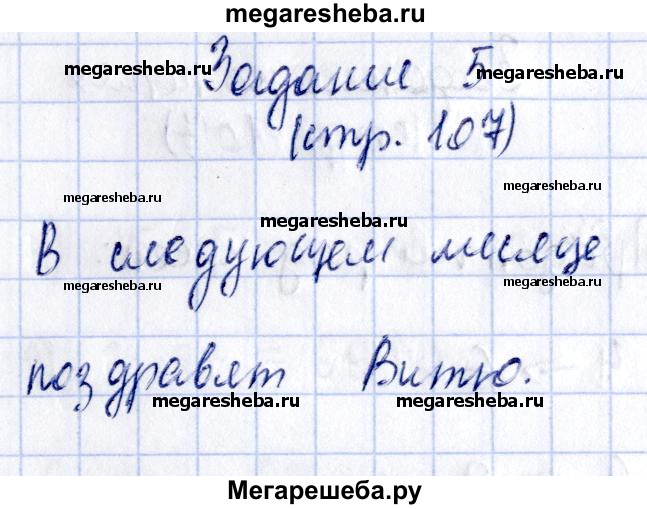 megaresheba.ru
megaresheba.ru Задание 5 megaresheba.ru
(стр. 107)
megaresheba.ru megaresheba.ru megaresheba.ru
В следующем месяце
megaresheba.ru megaresheba.ru
поздравят Витю.
megaresheba.ru megaresheba.ru
Мегарешеба.ру